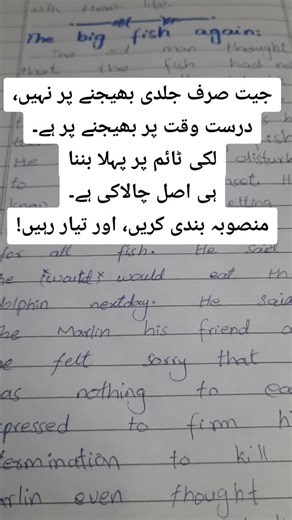 with their life.
The big fish again:
The old man thought
that the fish had no
جیت صرف جلدی بھیجنے پر نہیں،
درست وقت پر بھیجنے پر ہے۔
لکی ٹائم پر پہلا بننا
ہی اصل چالاکی ہے۔
منصوبہ بندی کریں، اور تیار رہیں!
He
disturb
to
for all fish. He said
he would eat th
dolphin nextday. He said
the Marlin his friend a
he felt sorry that
was nothing to ea
expressed to firm hi
termination to kill
Marlin even thought